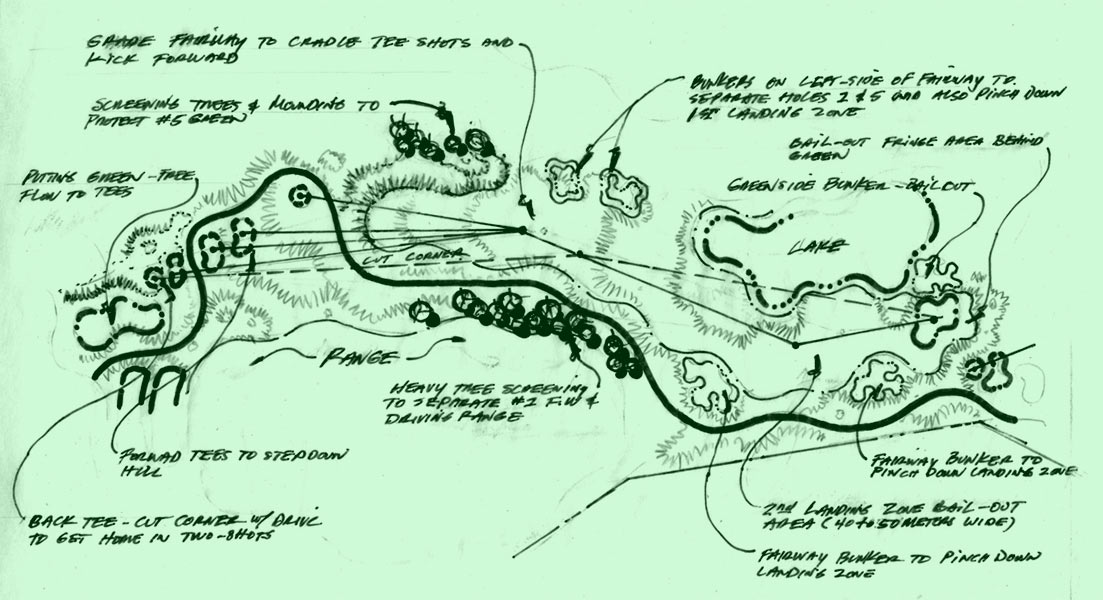 GRADE FAIRWAY TO CRADLE TEE SHOTS AND
KICK FORWARD
SCREENING TREES & MOUNDING TO
PROTECT #5 GREEN
BUNKERS ON LEFT-SIDE OF FAIRWAY TO
SEPARATE HOLES 1 & 5 AND ALSO PINCH DOWN
1ST LANDING ZONE
BAIL-OUT FRINGE AREA BEHIND
GREEN
PUTTING GREEN - FREE
FLOW TO TEES
GREENSIDE BUNKER - BAILOUT
LAKE
CUT CORNER
RANGE
HEAVY TREE SCREENING
TO SEPARATE #1 F.W &
DRIVING RANGE
FORWAD TEES TO STEP DOWN
HILL
FAIRWAY BUNKER TO
PINCH DOWN LANDING ZONE
BACK TEE - CUT CORNER W/ DRIVE
TO GET HOME IN TWO-SHOTS
2ND LANDING ZONE BAIL-OUT
AREA (40 to 50 METERS WIDE)
FAIRWAY BUNKER TO PINCH DOWN
LANDING ZONE